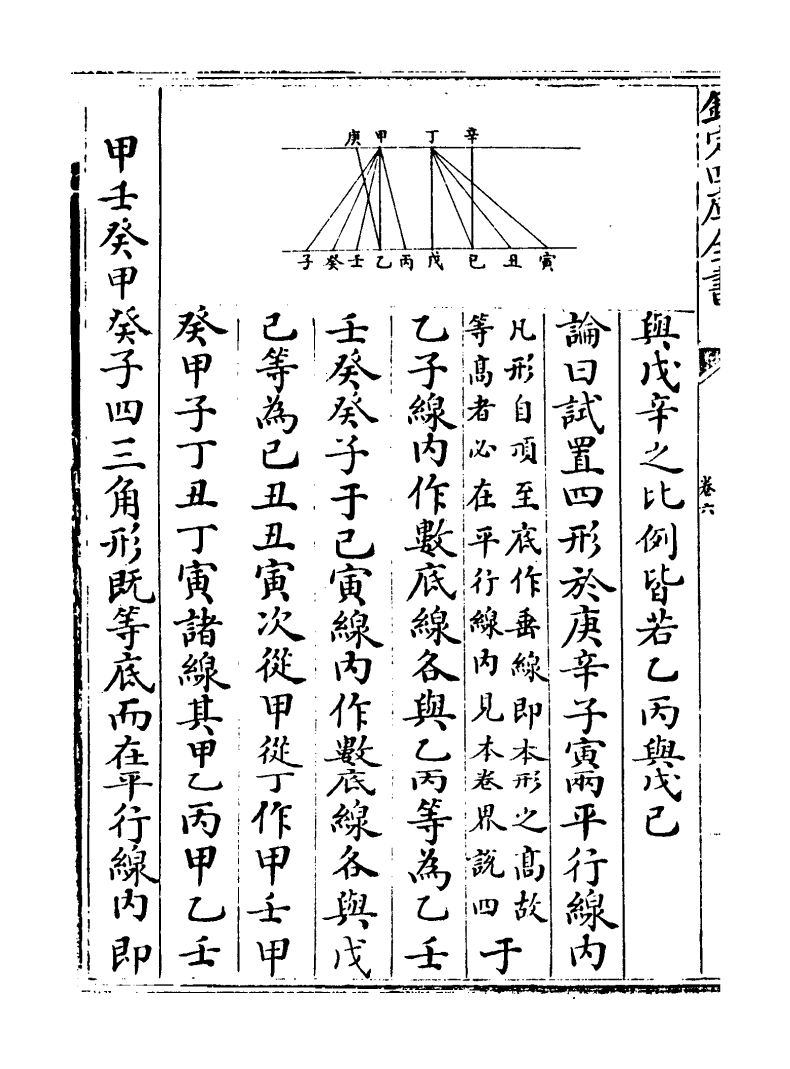 欽定四庫全書
卷六
庚甲丁辛
子癸壬乙丙戊己丑寅
與戊辛之比例皆若乙丙與戊已
論曰試置四形於庚辛子寅兩平行線内
凡形自頂至底作垂線即本形之髙故
等髙者必在平行線内見本卷界說四
于
乙子線内作數底線各與乙丙等為乙壬
壬癸癸子于已寅線内作數底線各與戊
已等為已丑丑寅次從甲從丁作甲壬甲
癸甲子丁丑丁寅諸線其甲乙丙甲乙壬
甲壬癸甲癸子四三角形既等底而在平行線内即